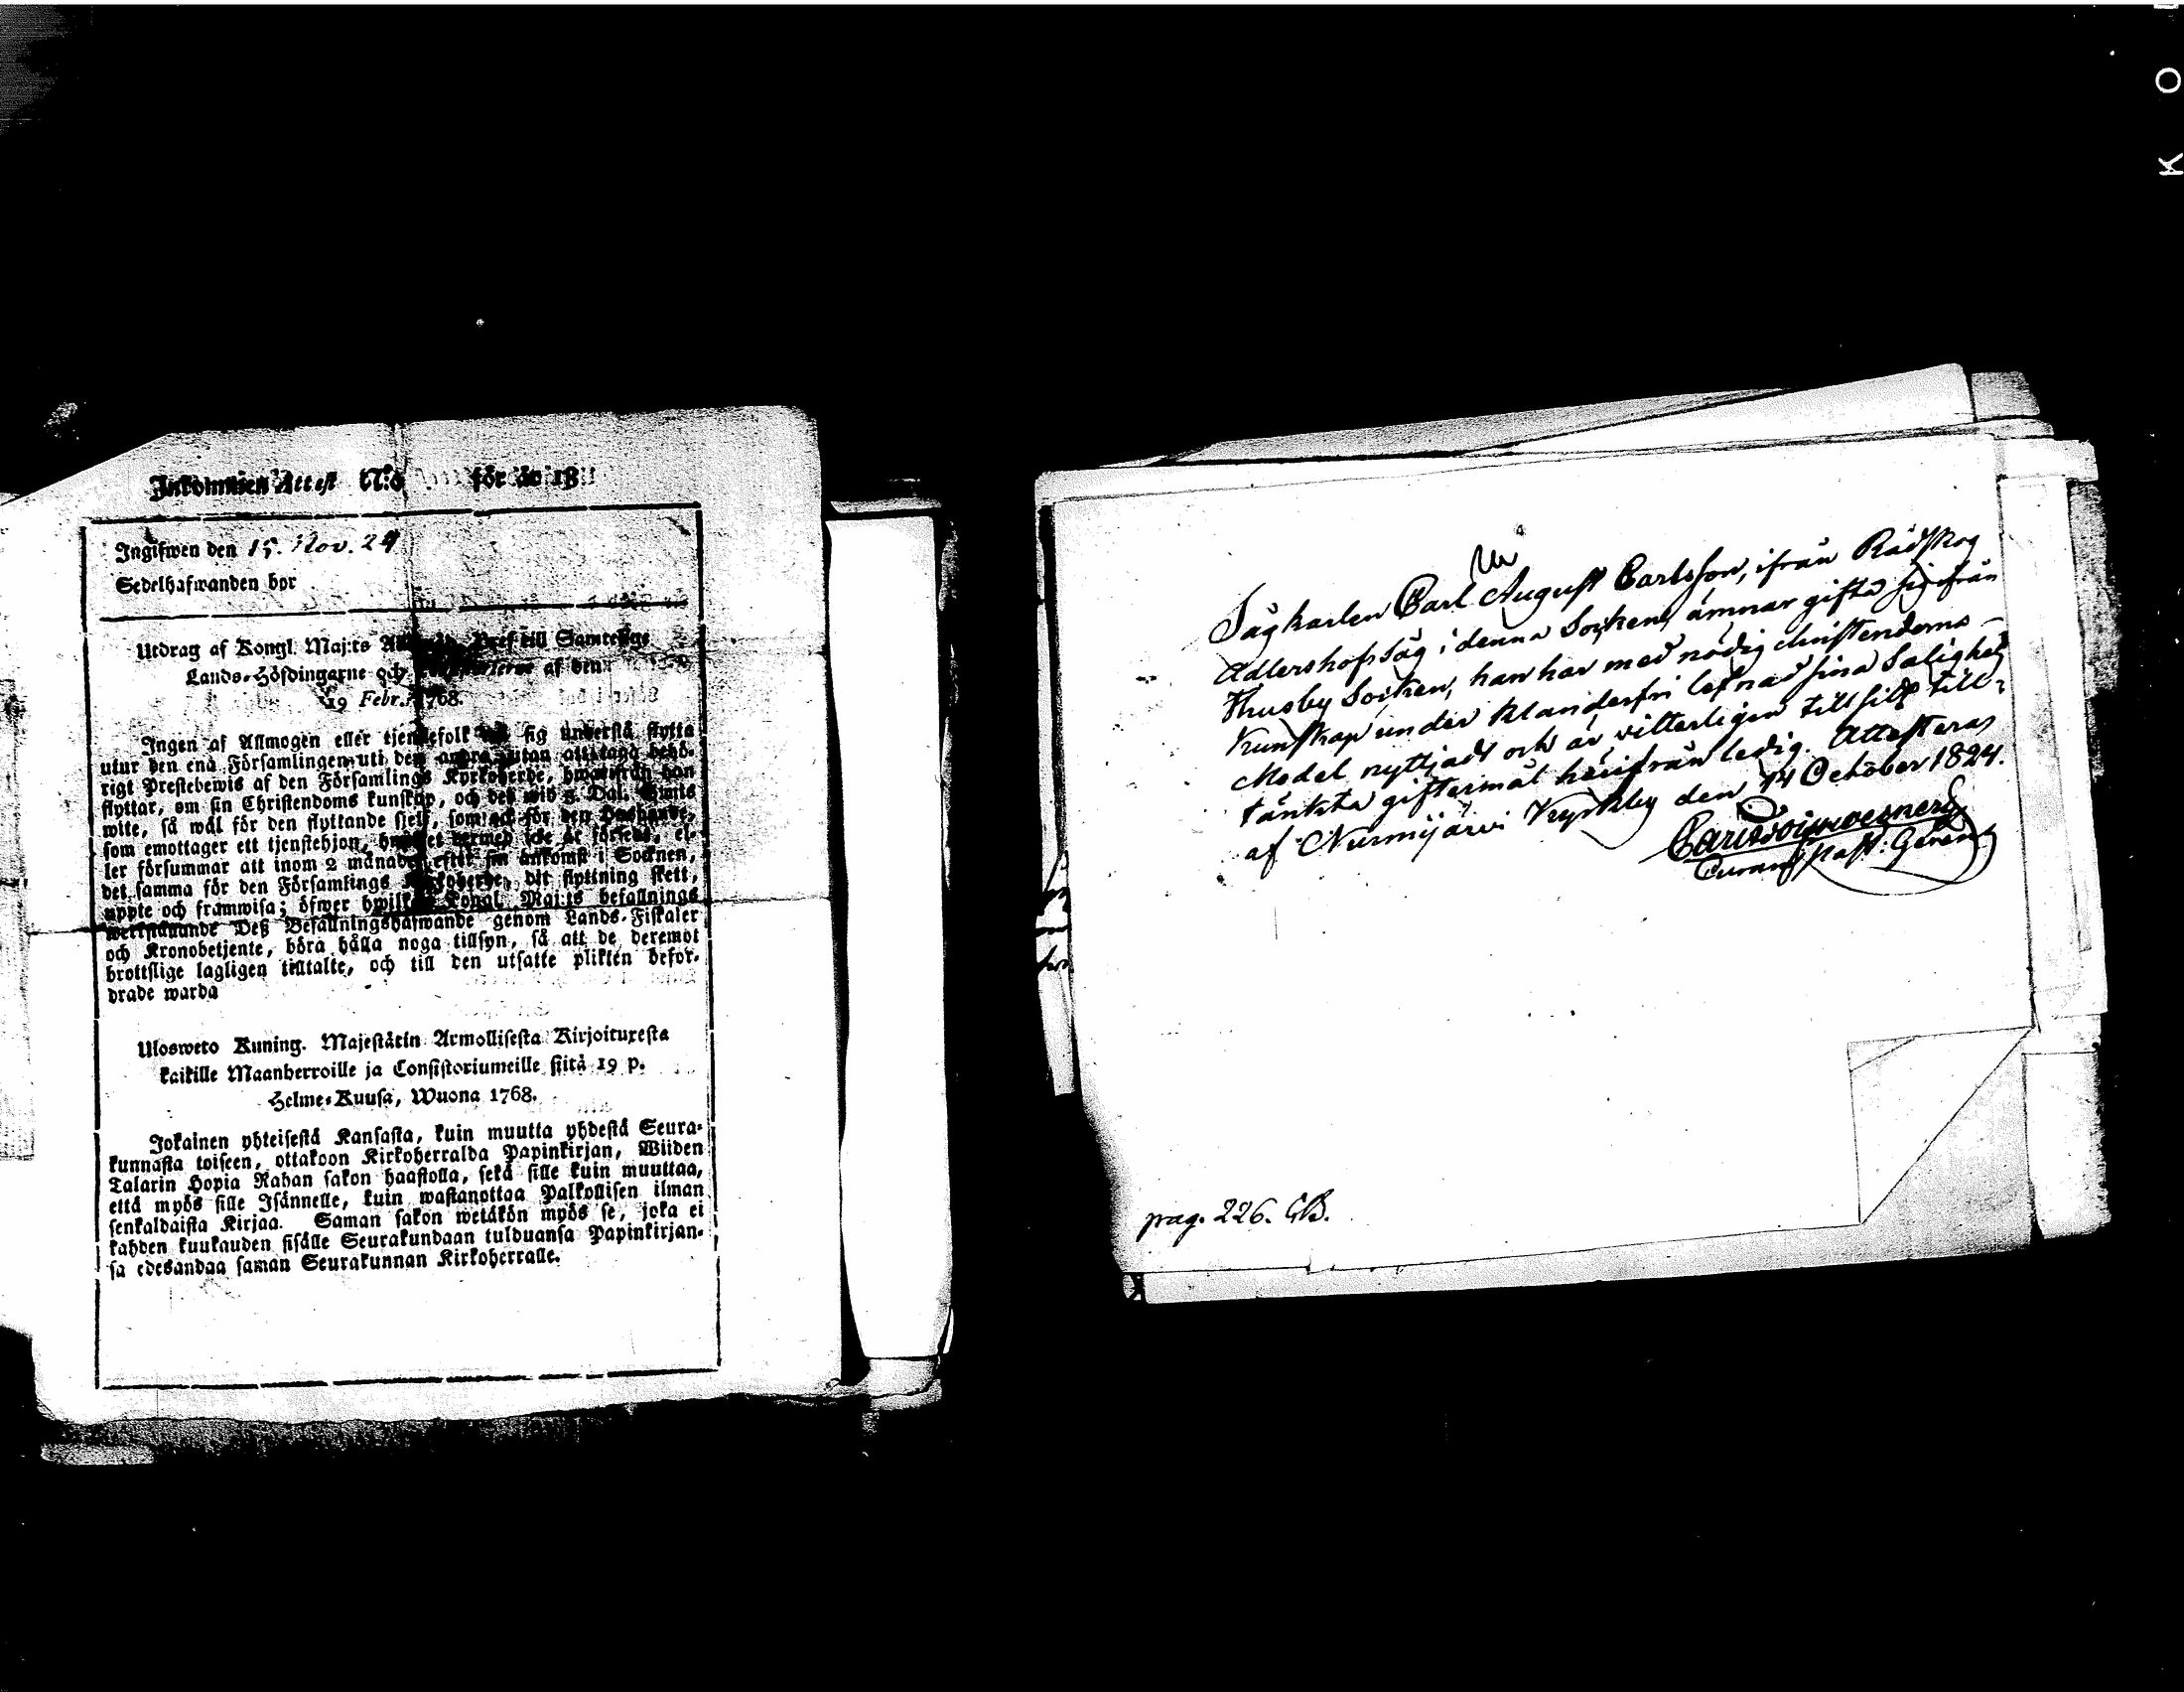 Inkommen Attest N:o för år 18
Ingifwen den 15. Nov. 24
Sedelhafwanden bor
Utdrag af Kongl. Maj:ts Bref till Samtelige
Lands-Höfdingarne och af den
19 Febr. 1768.
Ingen af Allmogen eller tjenstefolk må sig understå flytta
utur den ena Församlingen uti den andra, utan att taga behö-
rigt Prestebewis af den Församlings Kyrkoherde, hwarifrån han
flyttar, om sin Christendoms kunskap, och det wid 5 Dal. S:mts
wite, så wäl för den flyttande sjelf, som ock för den Husbonde,
som emottager ett tjenstehjon, hwilket dermed icke är försedt, el-
ler försummar att inom 2 månader efter sin ankomst i Socknen,
det samma för den Församlings Kyrkoherde, dit flyttning skett,
uppte och framwisa; öfwer hwilken Kongl. Maj:ts befallnings
werkställande Deß Befallningshafwande genom Lands-Fiskaler
och Kronobetjente, böra hålla noga tillsyn, så att de deremot
brottslige lagligen tilltalte, och till den utsatte plikten befor-
drade warda
Ulosweto Kuning. Majestätin Armollisesta Kirjoituxesta
kaikille Maanherroille ja Consistoriumeille siitä 19 p.
Helme-Kuusa, Wuona 1768.
Jokainen yhteisestä Kansasta, kuin muutta yhdestä Seura-
kunnasta toiseen, ottakoon Kirkoherralda Papinkirjan, Wiiden
Talarin Hopia Rahan sakon haastolla, sekä sille kuin muuttaa,
että myös sille Isännelle, kuin wastanottaa Palkollisen ilman
senkaldaista Kirjaa. Saman sakon wetäkön myös se, joka ei
kahden kuukauden sisälle Seurakundaan tulduansa Papinkirjan-
sa edesandaa saman Seurakunnan Kirkoherralle.
Sågkarlen Carl August Carlsson, ifrån Rådskog
Adlershofs Såg i denna Socken, ämnar gifta sig ifrån
Thusby Socken, han har med nödig christendoms-
Kunskap under klanderfri lefnad sina Salighets
Medel nyttjadt och är vitterligen till sitt till-
tänkta giftermål härifrån ledig. Attesteras
af Nurmijärvi Kyrkby den 14 October 1824.
Past:
pag. 226. CB.